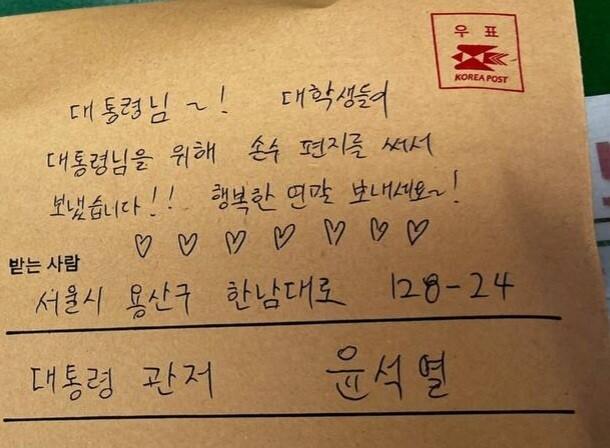 우표
KOREA POST
대통령님~! 대학생들이
대통령님을 위해 손수 편지를 써서
보냈습니다!! 행복한 연말 보내세요~!
♡ ♡ ♡ ♡ ♡ ♡ ♡
받는 사람
서울시 용산구 한남대로 128-24
대통령 관저 윤석열